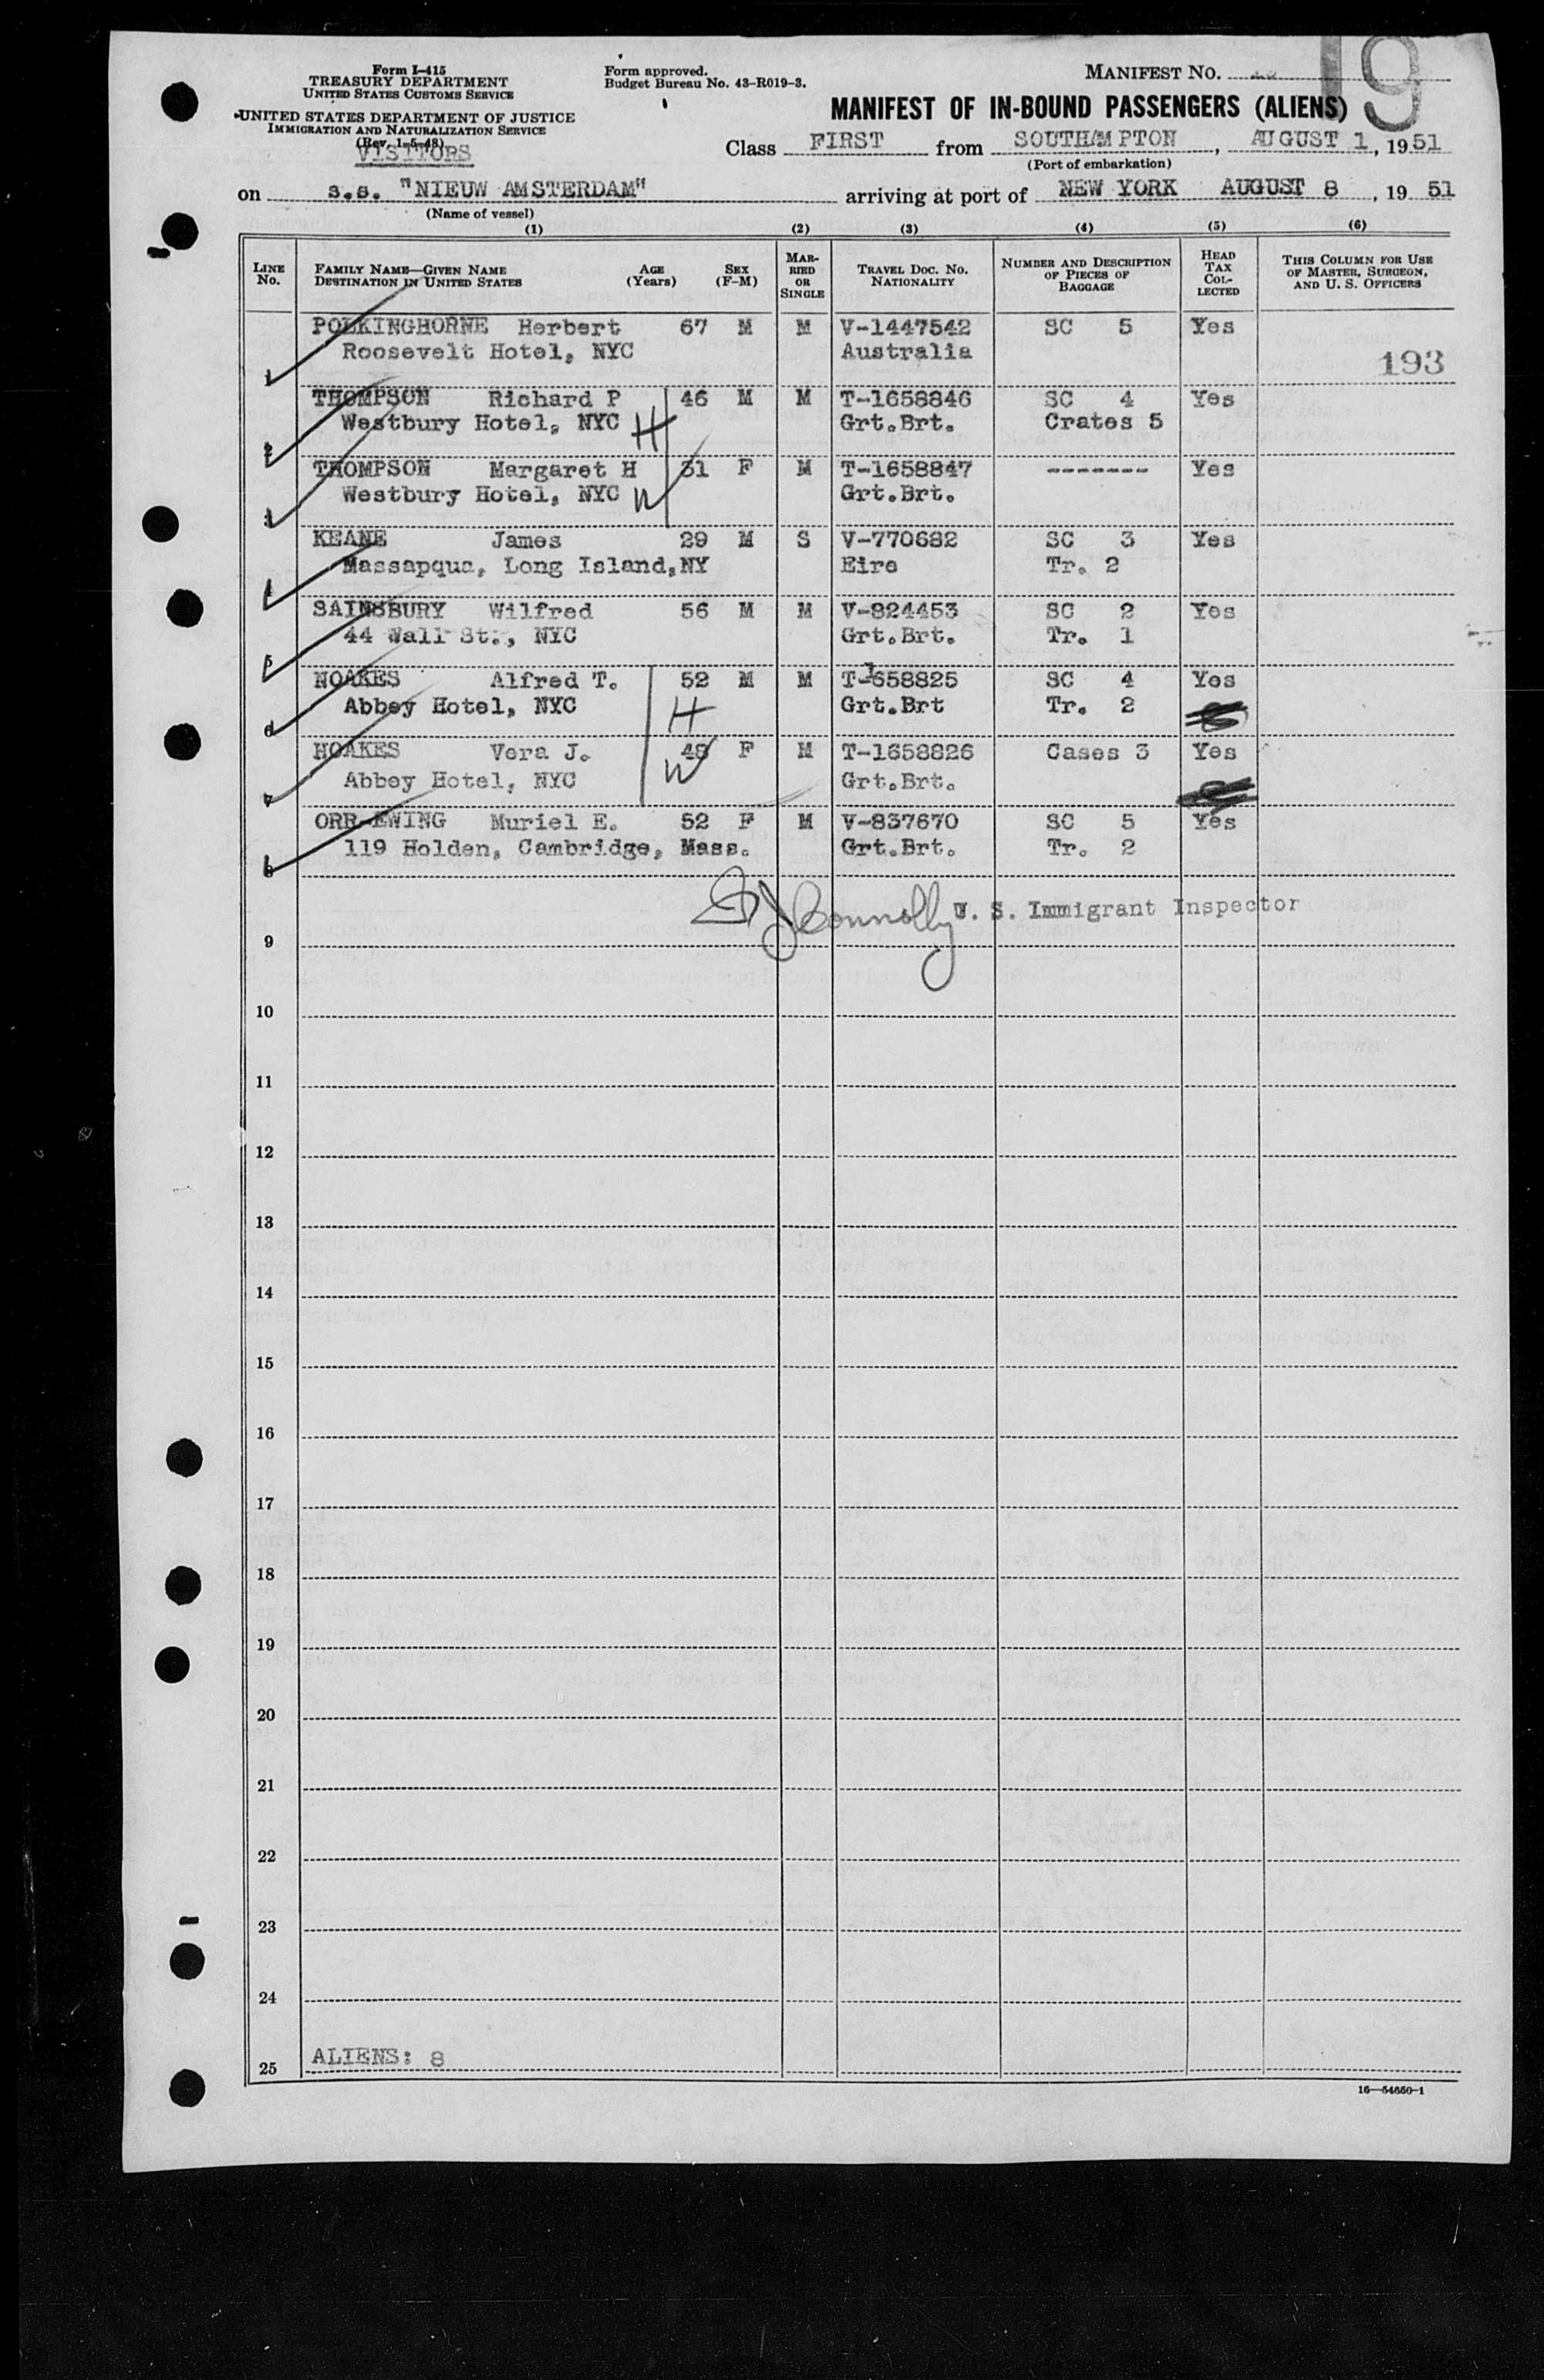 Form I-415
TREASURY DEPARTMENT
UNITED STATES CUSTOMS SERVICE
UNITED STATES DEPARTMENT OF JUSTICE
IMMIGRATION AND NATURALIZATION SERVICE
(Rev. 1-5-48)
VISITORS
Form approved.
Budget Bureau No. 43-R019-3.
MANIFEST NO.
19
MANIFEST OF IN-BOUND PASSENGERS (ALIENS)
Class FIRST from SOUTHAMPTON, AUGUST 1, 1951
(Port of embarkation)
on s.s. "NIEUW AMSTERDAM" arriving at port of NEW YORK AUGUST 8, 19 51
(Name of vessel)
(1) (2) (3) (4) (5) (6)
LINE NO. FAMILY NAME—GIVEN NAME DESTINATION IN UNITED STATES AGE (Years) SEX (F-M) MARRIED OR SINGLE TRAVEL DOC. NO. NATIONALITY NUMBER AND DESCRIPTION OF PIECES OF BAGGAGE HEAD TAX COLLECTED THIS COLUMN FOR USE OF MASTER, SURGEON, AND U. S. OFFICERS
POLKINGHORNE Herbert 67 M M V-1447542 SC 5 Yes
1 Roosevelt Hotel, NYC Australia 193
THOMPSON Richard P 46 M M T-1658846 SC 4 Yes
2 Westbury Hotel, NYC H Grt.Brt. Crates 5
THOMPSON Margaret H 31 F M T-1658847 ------- Yes
3 Westbury Hotel, NYC W Grt.Brt.
KEANE James 29 M S V-770682 SC 3 Yes
4 Massapqua, Long Island,NY Eire Tr. 2
SAINSBURY Wilfred 56 M M V-824453 SC 2 Yes
5 44 Wall St., NYC Grt.Brt. Tr. 1
NOAKES Alfred T. 52 M M T-1658825 SC 4 Yes
6 Abbey Hotel, NYC H Grt.Brt Tr. 2
NOAKES Vera J. 48 F M T-1658826 Cases 3 Yes
7 Abbey Hotel, NYC W Grt.Brt.
ORR-EWING Muriel E. 52 F M V-837670 SC 5 Yes
8 119 Holden, Cambridge, Mass. Grt.Brt. Tr. 2
Connolly U. S. Immigrant Inspector
9
10
11
12
13
14
15
16
17
18
19
20
21
22
23
24
25 ALIENS: 8
16—54660-1